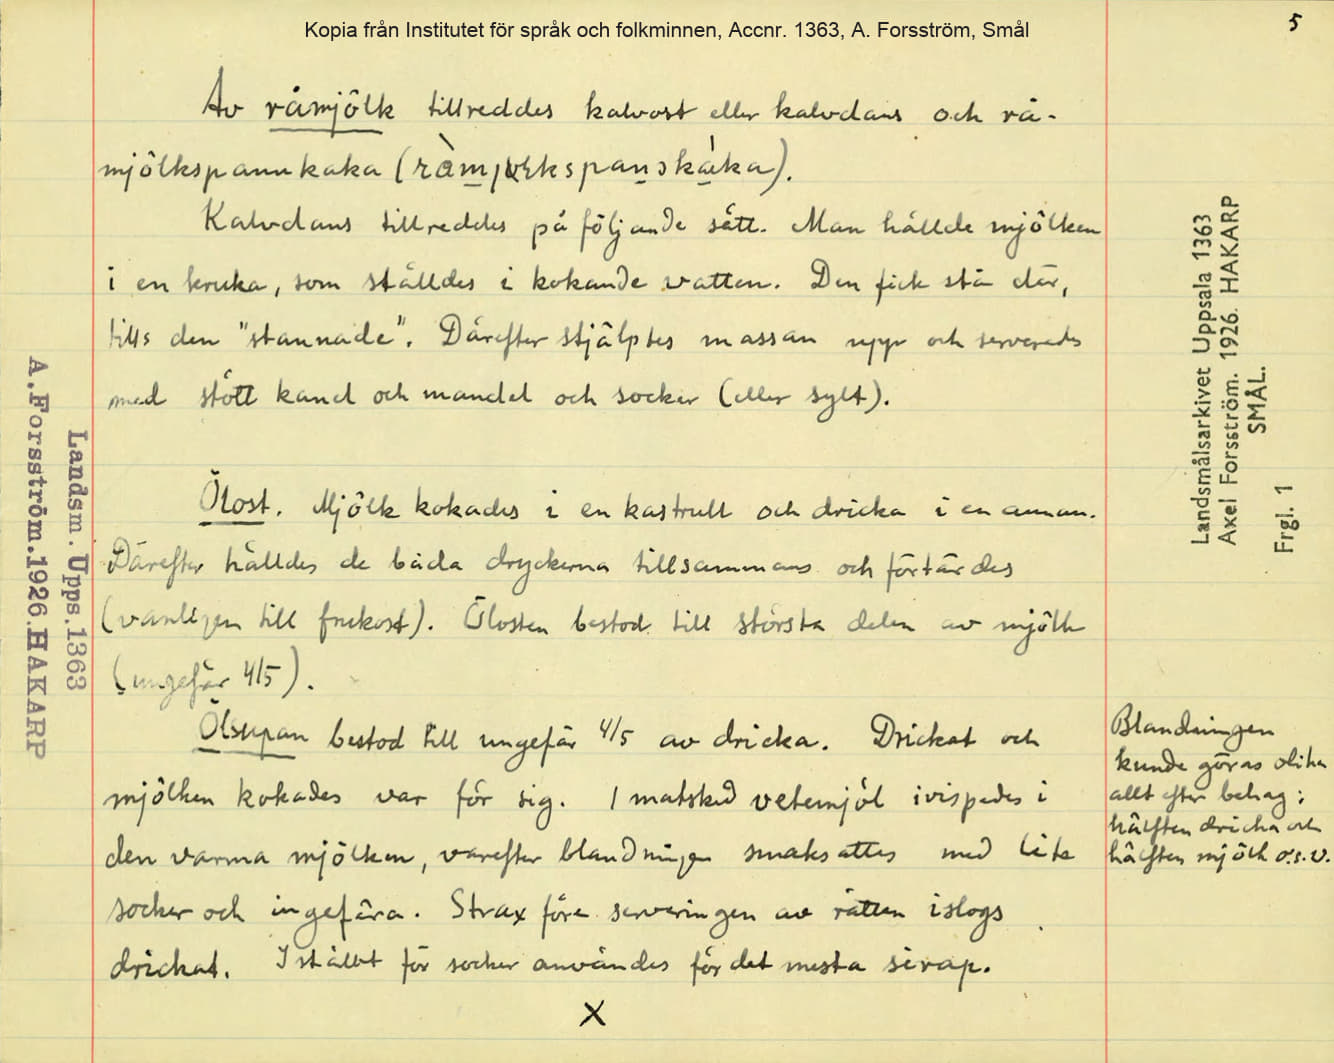 Kopia från Institutet för språk och folkminnen, Accnr. 1363, A. Forsström, Smål
5
Av råmjölk tillreddes kalvost eller kalvdans och rå-
mjölkspannkaka
Kalvdans tillreddes på följande sätt. Man hällde mjölken
i en kruka, som ställdes i kokande vatten. Den fick stå där,
tills den "stannade". Därefter stjälptes massan upp och serverades
med stött kanel och mandel och socker (eller sylt).
Ölost. Mjölk kokades i en kastrull och dricka i en annan.
Därefter hälldes de båda dryckerna tillsammans och förtärdes
(vanligen till frukost). Ölosten bestod till största delen av mjölk
(ungefär 4/5).
Ölsupan bestod till ungefär 4/5 av dricka. Drickat och
mjölken kokades var för sig. 1 matsked vetemjöl ivispades i
den varma mjölken, varefter blandningen smaksattes med lite
socker och ingefära. Strax före serveringen av rätten islogs
drickat. I stället för socker användes för det mesta sirap.
X
Blandningen
kunde göras olika
allt efter behag:
hälften dricka och
hälften mjölk o.s.v.
Landsmålsarkivet Uppsala 1363
Axel Forsström. 1926. HAKARP
SMÅL.
Frgl. 1
Landsm. Upps. 1363
A. Forsström. 1926. HAKARP